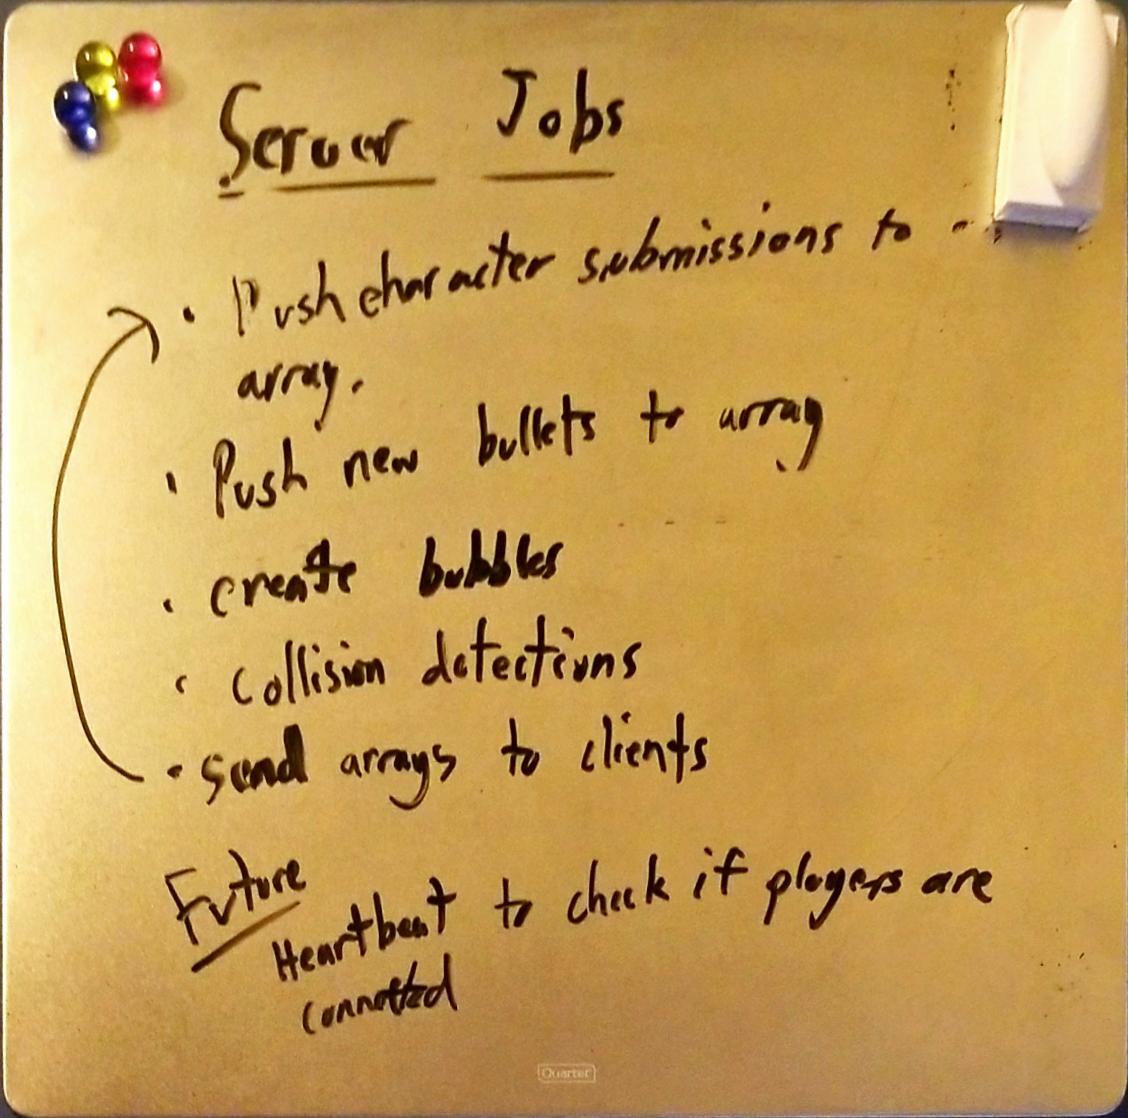 Server Jobs
• Push character submissions to
array.
• Push new bullets to array
• create bubbles
• Collision detections
• send arrays to clients
Future
Heartbeat to check if players are
connected
Quartet